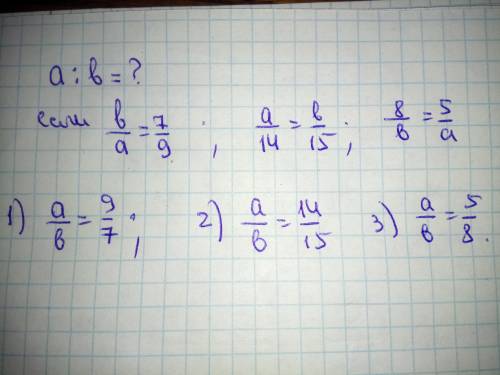 a : b = ?
если b/a = 7/9 ; a/14 = b/15 ; 8/b = 5/a
1) a/b = 9/7 ; 2) a/b = 14/15 3) a/b = 5/8.